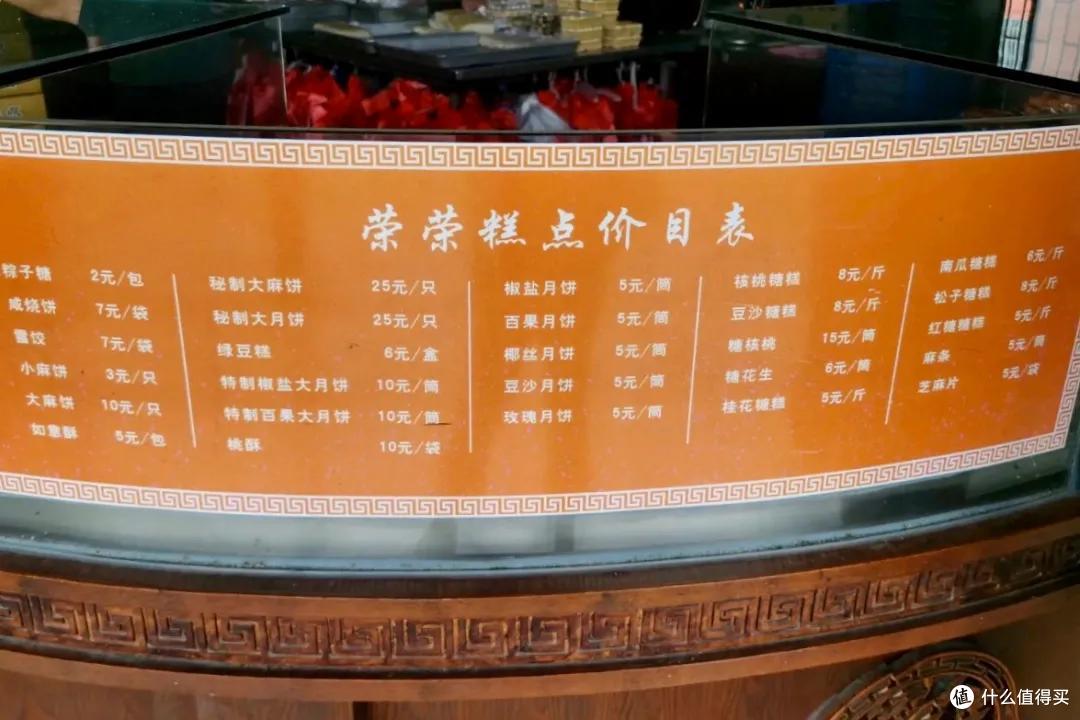 荣荣糕点价目表
粽子糖 2元/包
咸烧饼 7元/袋
雪饺 7元/袋
小麻饼 3元/只
大麻饼 10元/只
如意酥 5元/包
秘制大麻饼 25元/只
秘制大月饼 25元/只
绿豆糕 6元/盒
特制椒盐大月饼 10元/筒
特制百果大月饼 10元/筒
桃酥 10元/袋
椒盐月饼 5元/筒
百果月饼 5元/筒
椰丝月饼 5元/筒
豆沙月饼 5元/筒
玫瑰月饼 5元/筒
核桃糖糕 8元/斤
豆沙糖糕 8元/斤
糖核桃 15元/筒
糖花生 6元/筒
桂花糖糕 5元/斤
南瓜糖糕 6元/斤
松子糖糕 8元/斤
红糖糖糕 5元/斤
麻条 5元/筒
芝麻片 5元/袋
值 什么值得买